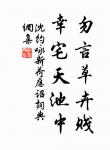 勿言草卉贱
幸宅天池中
沈约咏新荷应诏词典
网集